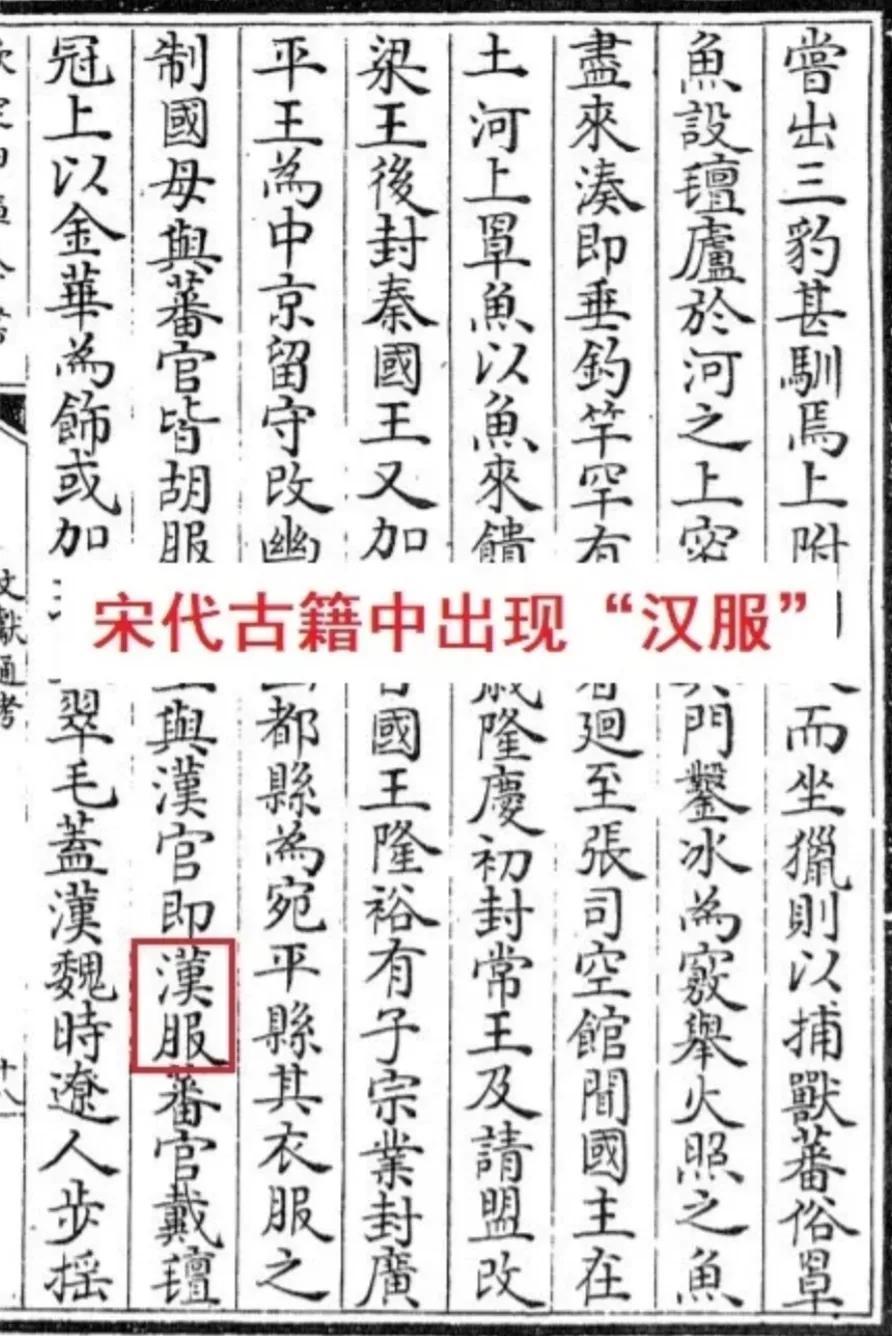 嘗出三豹甚馴焉上附而坐獵則以捕獸蕃俗罩
魚設氊廬於河之上密門鑿冰為竅舉火照之魚
盡來湊即垂釣竿罕有廻至張司空館聞國主在
土河上罩魚以魚來饋歲隆慶初封常王及請盟改
梁王後封秦國王又加國王隆裕有子宗業封廣
平王為中京留守改幽都縣為宛平縣其衣服之
制國母與蕃官皆胡服與漢官即漢服蕃官戴氊
冠上以金華為飾或加翠毛蓋漢魏時遼人步搖
文獻通考
宋代古籍中出现“汉服”